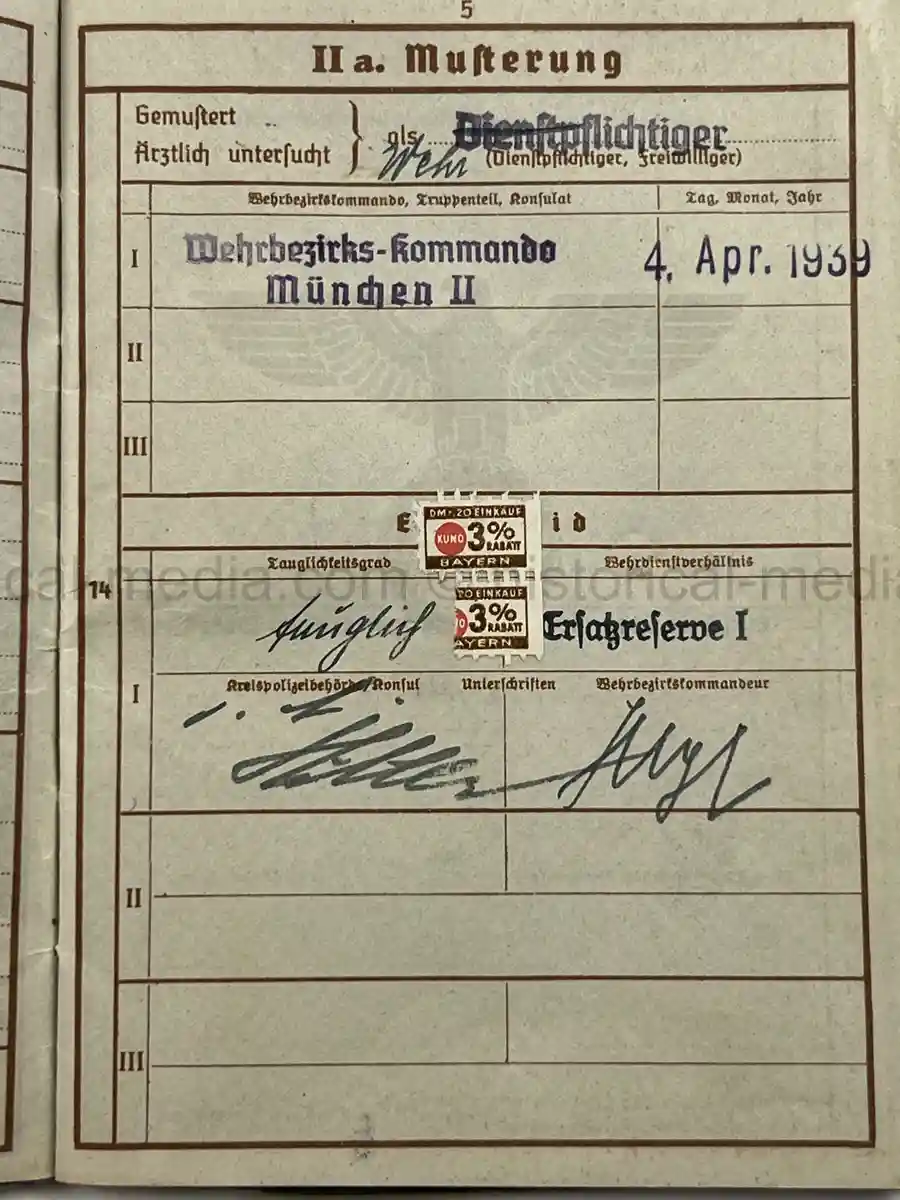 5
II a. Musterung
Gemustert
Ärztlich untersucht } als Dienstpflichtiger
Wehr (Dienstpflichtiger, Freiwilliger)
Wehrbezirkskommando, Truppenteil, Konsulat Tag, Monat, Jahr
I Wehrbezirks-Kommando 4. Apr. 1939
München II
II
III
E id
DM -.20 EINKAUF
KUNO 3% RABATT
BAYERN
Tauglichkeitsgrad Wehrdienstverhältnis
cal-media.com historical-media
14
20 EINKAUF
NO 3% RABATT
AYERN
tauglich Ersatzreserve I
I Kreispolizeibehörde/Konsul Unterschriften Wehrbezirkskommandeur
II
III